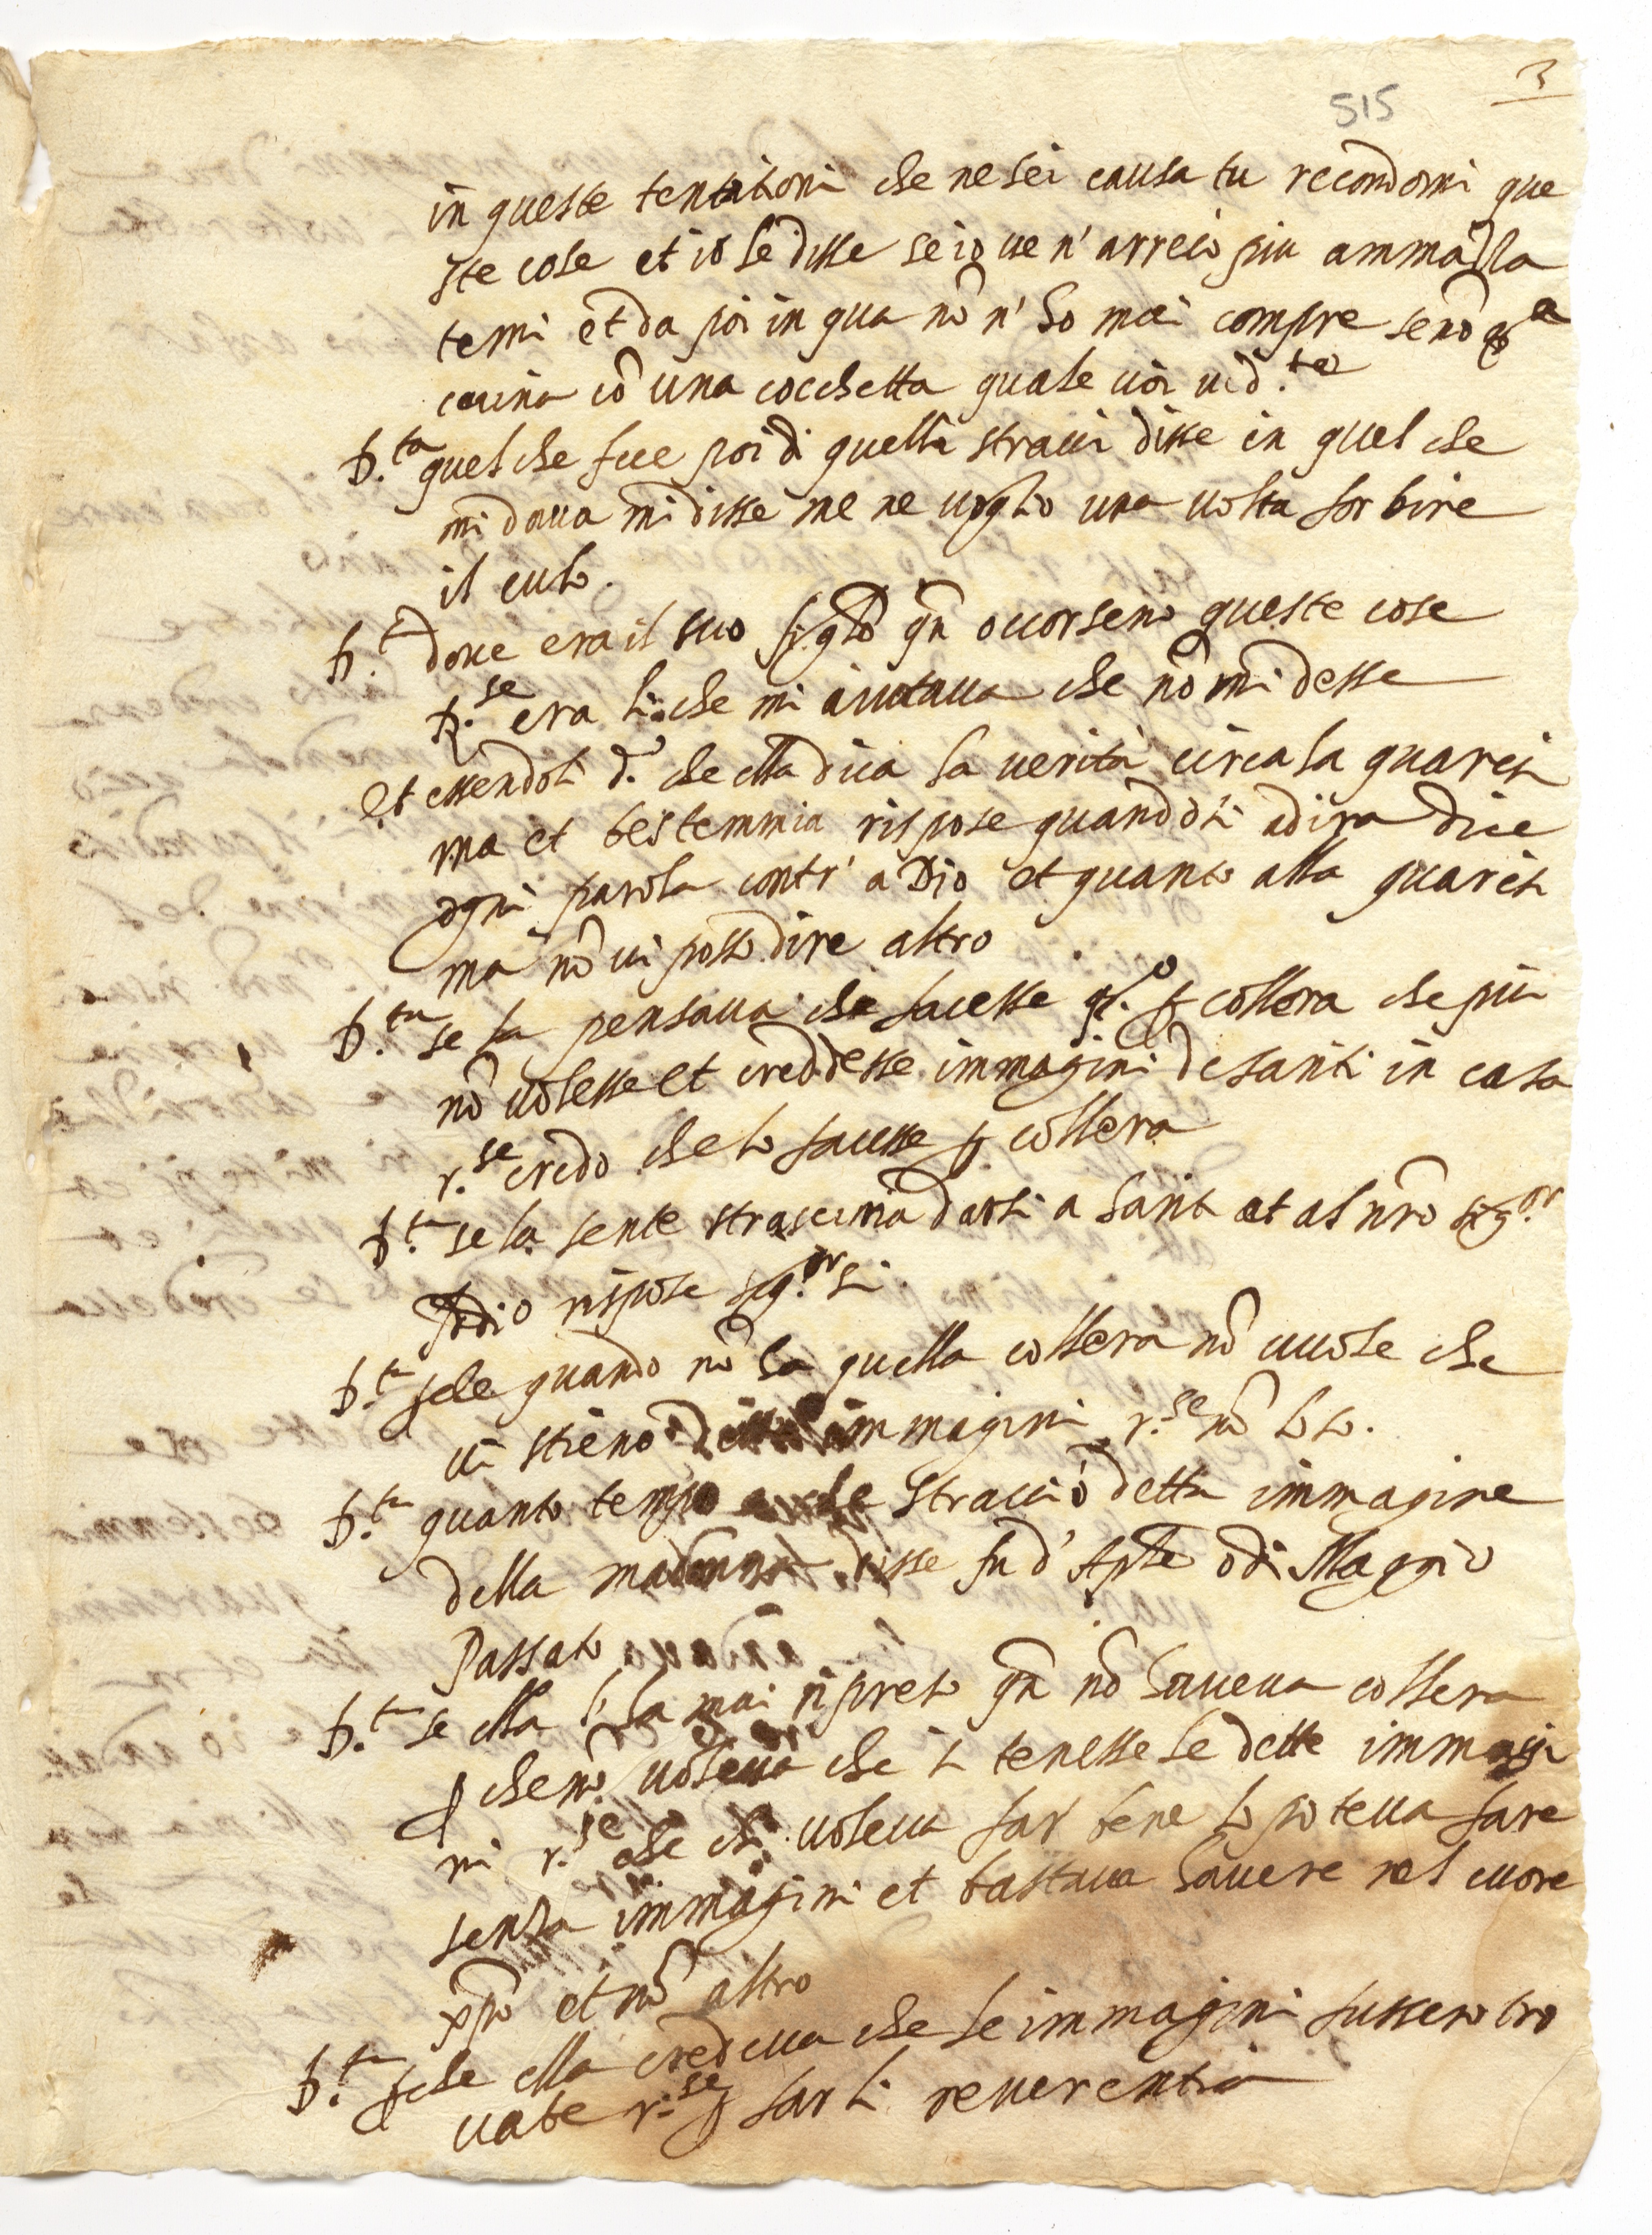 3
515
in queste tentationi che ne sei causa tu recandomi que
ste cose et io le disse se io ve n'arreco piu ammazza
temi et da poi in qua nō n'ho mai compre senō
carina cō una crocchetta quale voi
D.ta quel che fece poi di quelli stracci disse in quel che
mi dava mi disse me ne voglio una volta forbire
il culo.
D.ta dove era il suo figlo qn̄ occorseno queste cose
R.se era li che mi aiutava che nō mi desse
Et essendoli d.o che ella dica la verità circa la quaresi
ma et bestemmia rispose quando si adira dice
ogni parola contr'a Dio et quanto alla quaresi
ma nō vi posso dire altro
D.ta se la pensava che facesse q.o p collera che piu
nō volesse et credesse immagini de santi in casa
r.se credo che lo facesse p collera
D.ta se la sente strascina darli a santi et al nr̄o sig.or
Iddio rispose sig.or si
D.ta se quando nō ha quella collera nō vuole che
vi stieno dette immagini r.se nō lo so.
D.ta quanto tempo è che stracciò detta immagine
della madonna disse fu d'Aple o di Maggio
Passato
D.ta se ella l'ha mai ripreso qn̄ nō haveva collera
p che nō voleva che si tenesse le dette immagi
ni r.se che chi voleva far bene lo poteva fare
senza immagini et bastava havere nel cuore
xpo et nō altro
D.ta p che ella credeva che le immagini fussero tro
vate r.se p farli reverentia